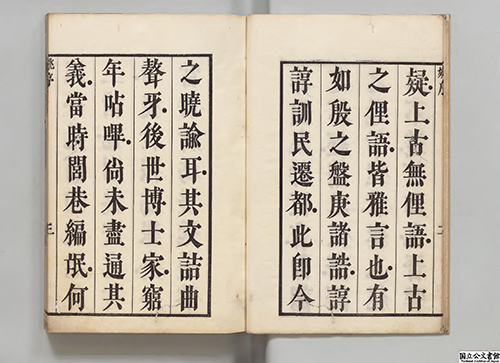 疑上古無俚語上古
之俚語皆雅言也有
如殷之盤庚諸誥諄
諄訓民遷都此卽今
之曉諭耳其文詰曲
聱牙後世博士家窮
年呫嗶尚未盡通其
義當時閭巷編氓何
三
国立公文書館
National Archives of Japan